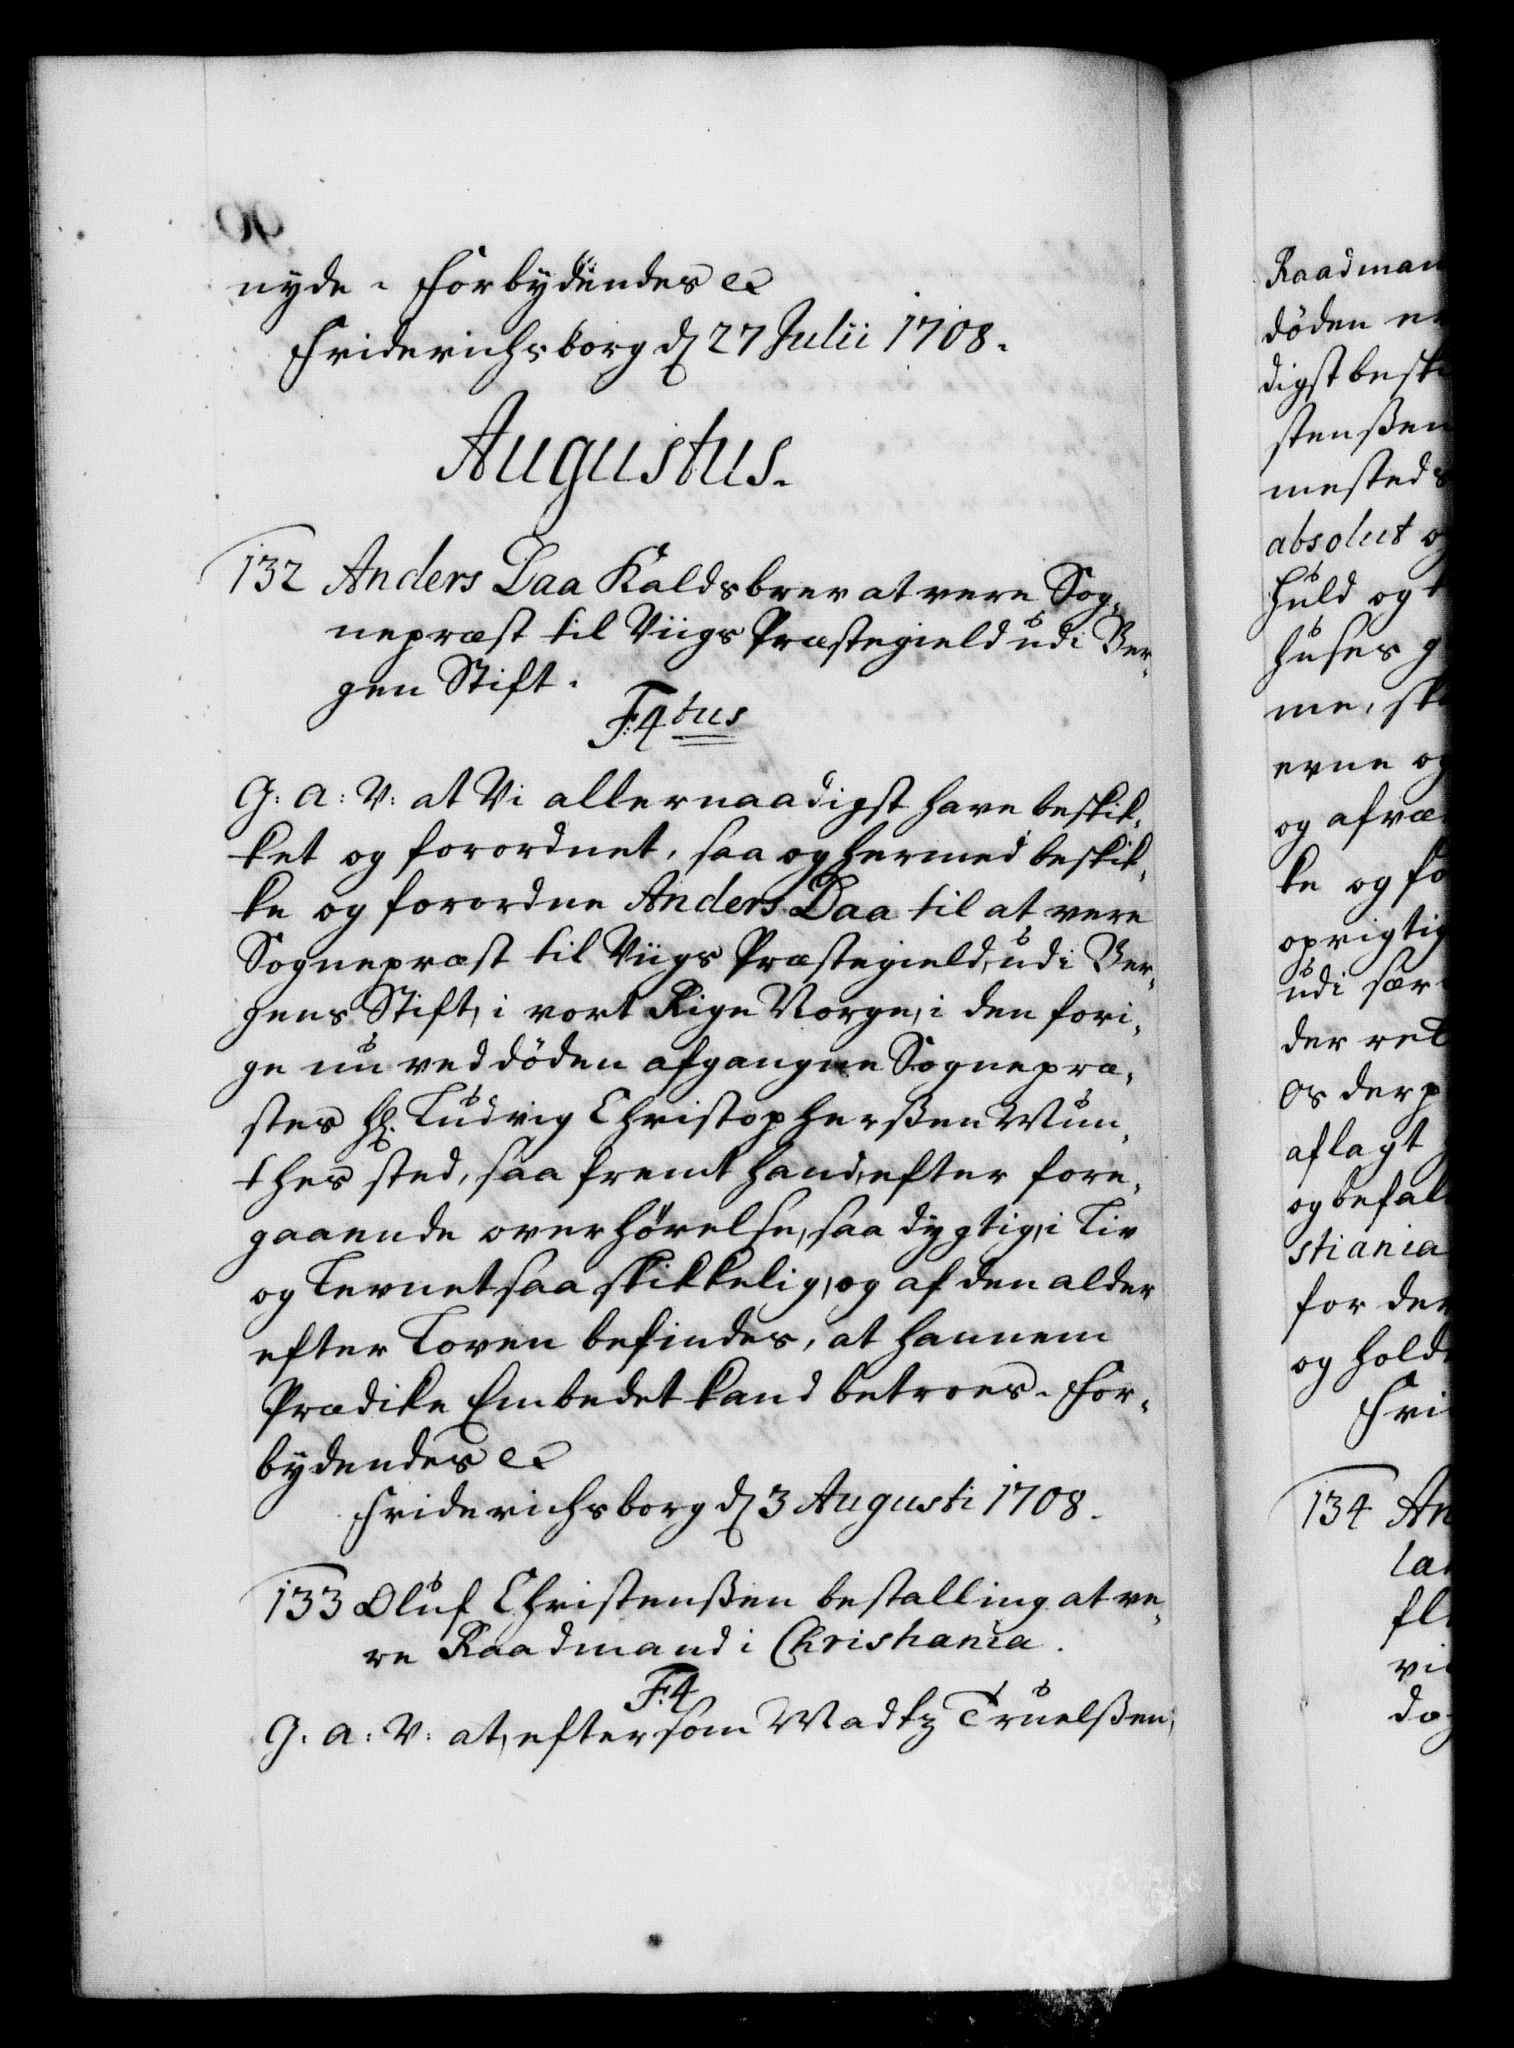 nyde. Forbydendes etc
Friderichsborg d 27 Julii 1708.
Augustus.
132 Anders Daa Kaldsbrev at vere Sog-
nepræst til Viigs Præstegield udi Ber-
gen Stift.
F:4tus
G: A: V: at Vi allernaadigst have beskik-
ket og forordnet, saa og hermed beskik-
ke og forordne Anders Daa til at vere
Sognepræst til Viigs Præstegield, udi Ber-
gens Stift, i vort Rige Norge, i den fori-
ge nu ved döden afgangne Sognepræ-
stes Hr. Ludvig Christophersen Mun-
thes sted, saa fremt hand, efter fore-
gaaende overhörelse, saa dygtig, i Liv
og Levnet saa skikkelig, og af den alder
efter Loven befindes, at hannem
Prædike Embedet kand betroes. For-
bydendes etc
Friderichsborg d 3 Augusti 1708.
133 Oluf Christenßen bestalling at ve-
re Raadmand i Christiania.
F:4
G: A: V: at, eftersom Madtz Truelßen,
Raadman
döden
digst besk
stenßen
mesteds
absolut
huld og
huses
me, sk
evne og
og afvæ
ke og fo
oprigtig
udi sær
der ret
Os der p
aflagt
og befal
stiania
for der
og hold
Fri
134 An
la
fl
vi